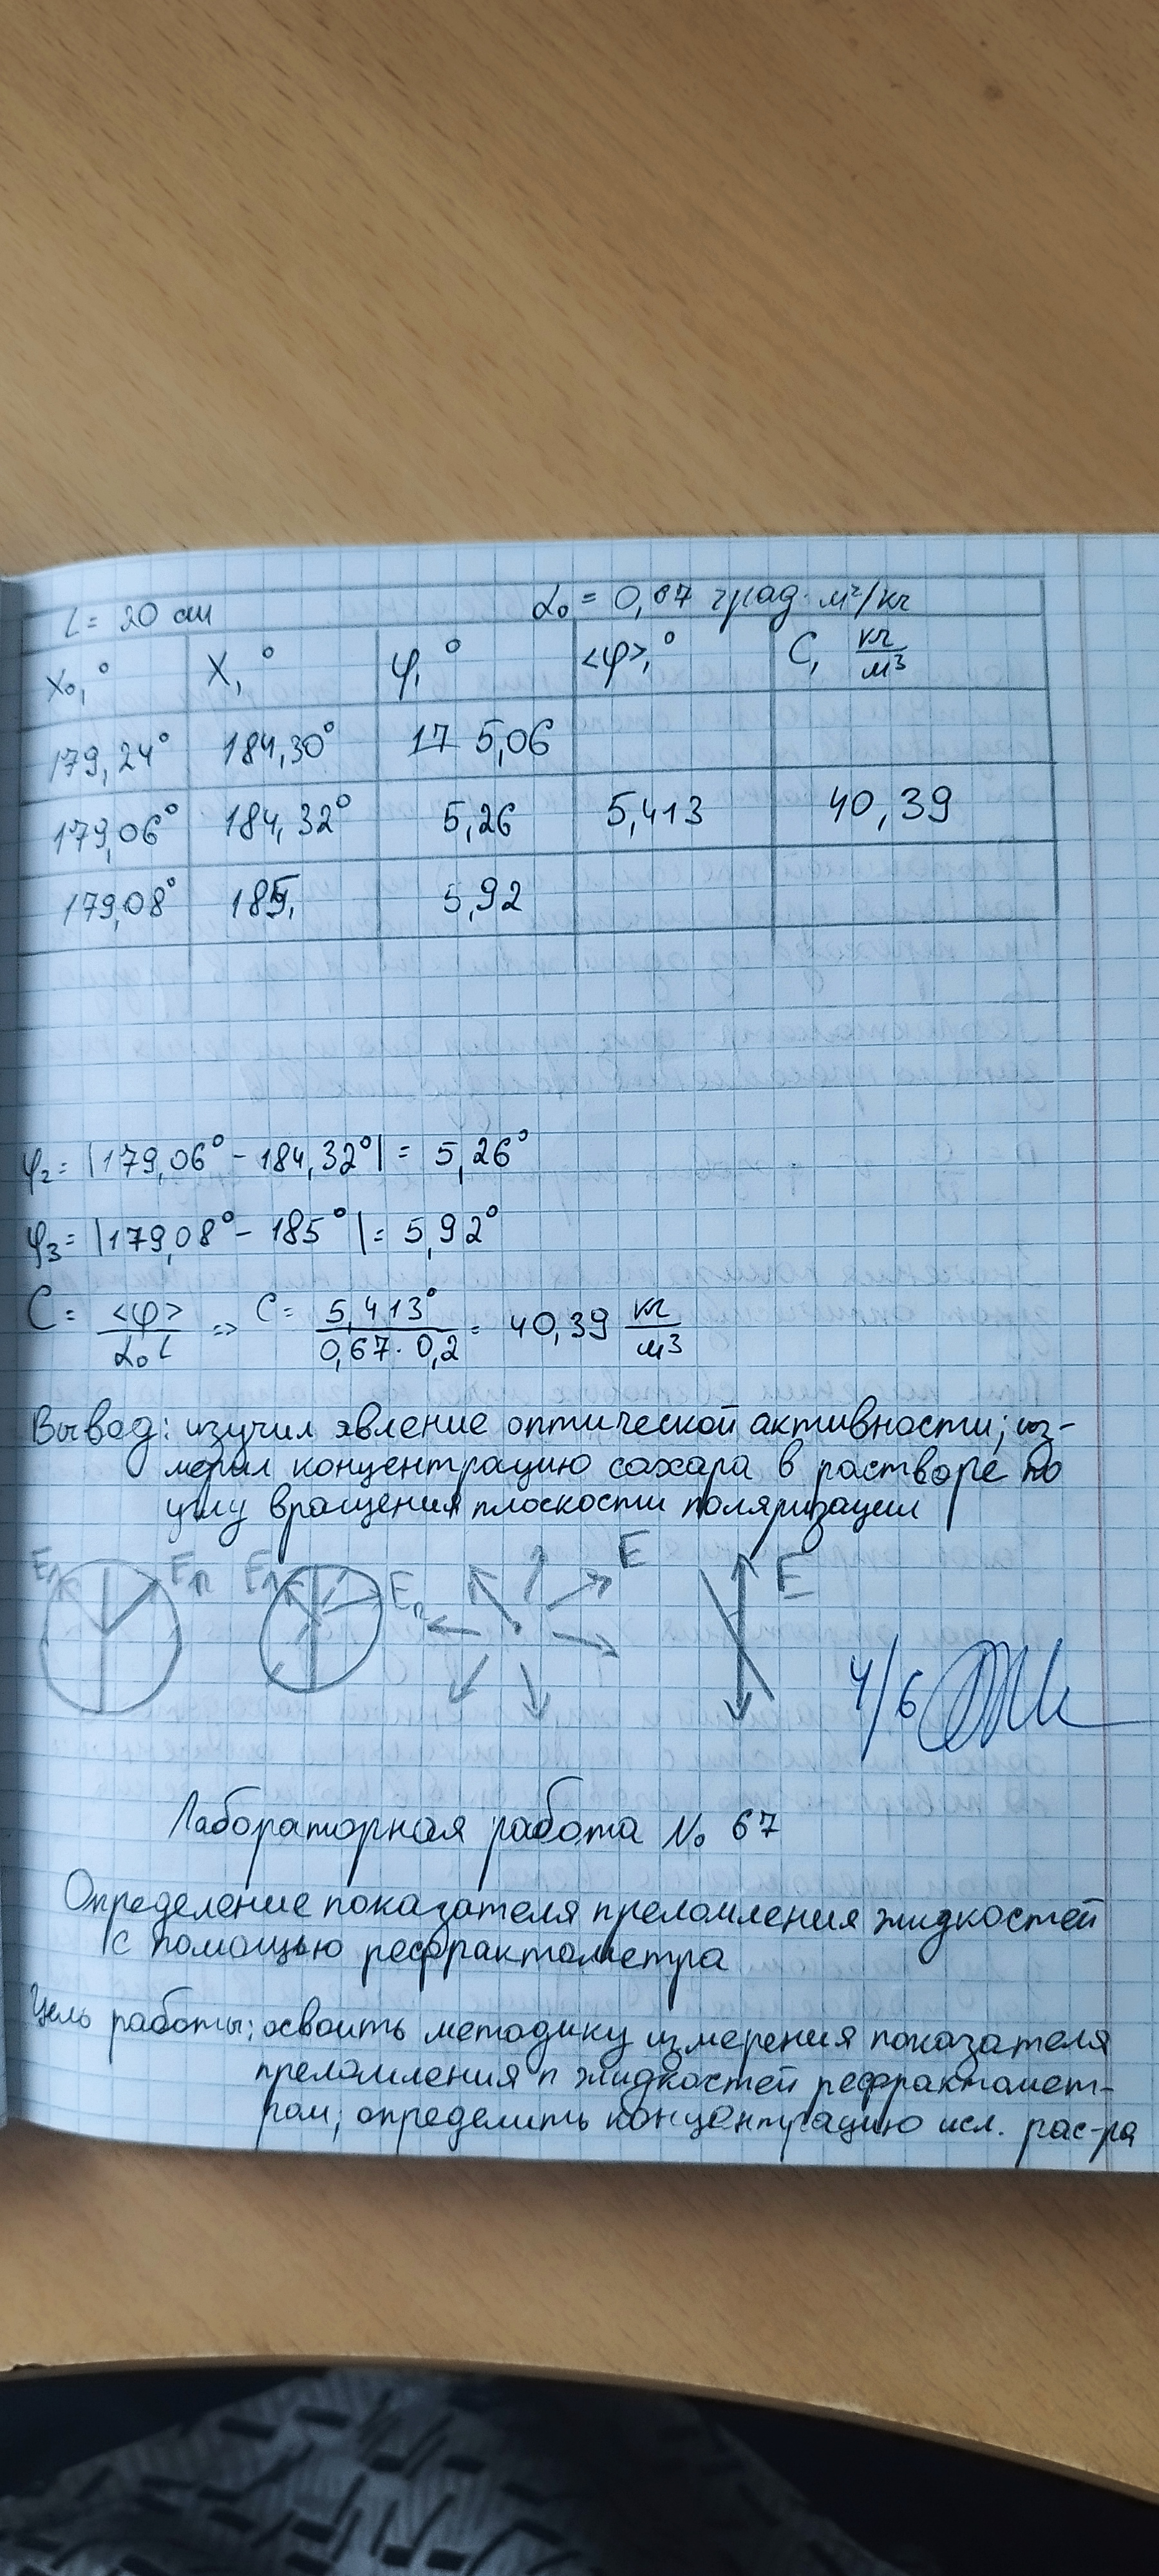 L = 20 см α₀ = 0,67 град·м²/кг
X₀,° X,° φ,° <φ>,° C, кг/м³
179,24° 184,30° 17 5,06
179,06° 184,32° 5,26 5,413 40,39
179,08° 185, 5,92
φ₂ = |179,06° - 184,32°| = 5,26°
φ₃ = |179,08° - 185°| = 5,92°
C = <φ>/α₀L => C = 5,413°/0,67·0,2 = 40,39 кг/м³
Вывод: изучил явление оптической активности; из-
мерил концентрацию сахара в растворе по
углу вращения плоскости поляризации
E Eп E Eп E E
4/6
Лабораторная работа № 67
Определение показателя преломления жидкостей
с помощью рефрактометра
Цель работы: освоить методику измерения показателя
преломления n жидкостей рефрактомет-
ром; определить концентрацию исл. рас-ра